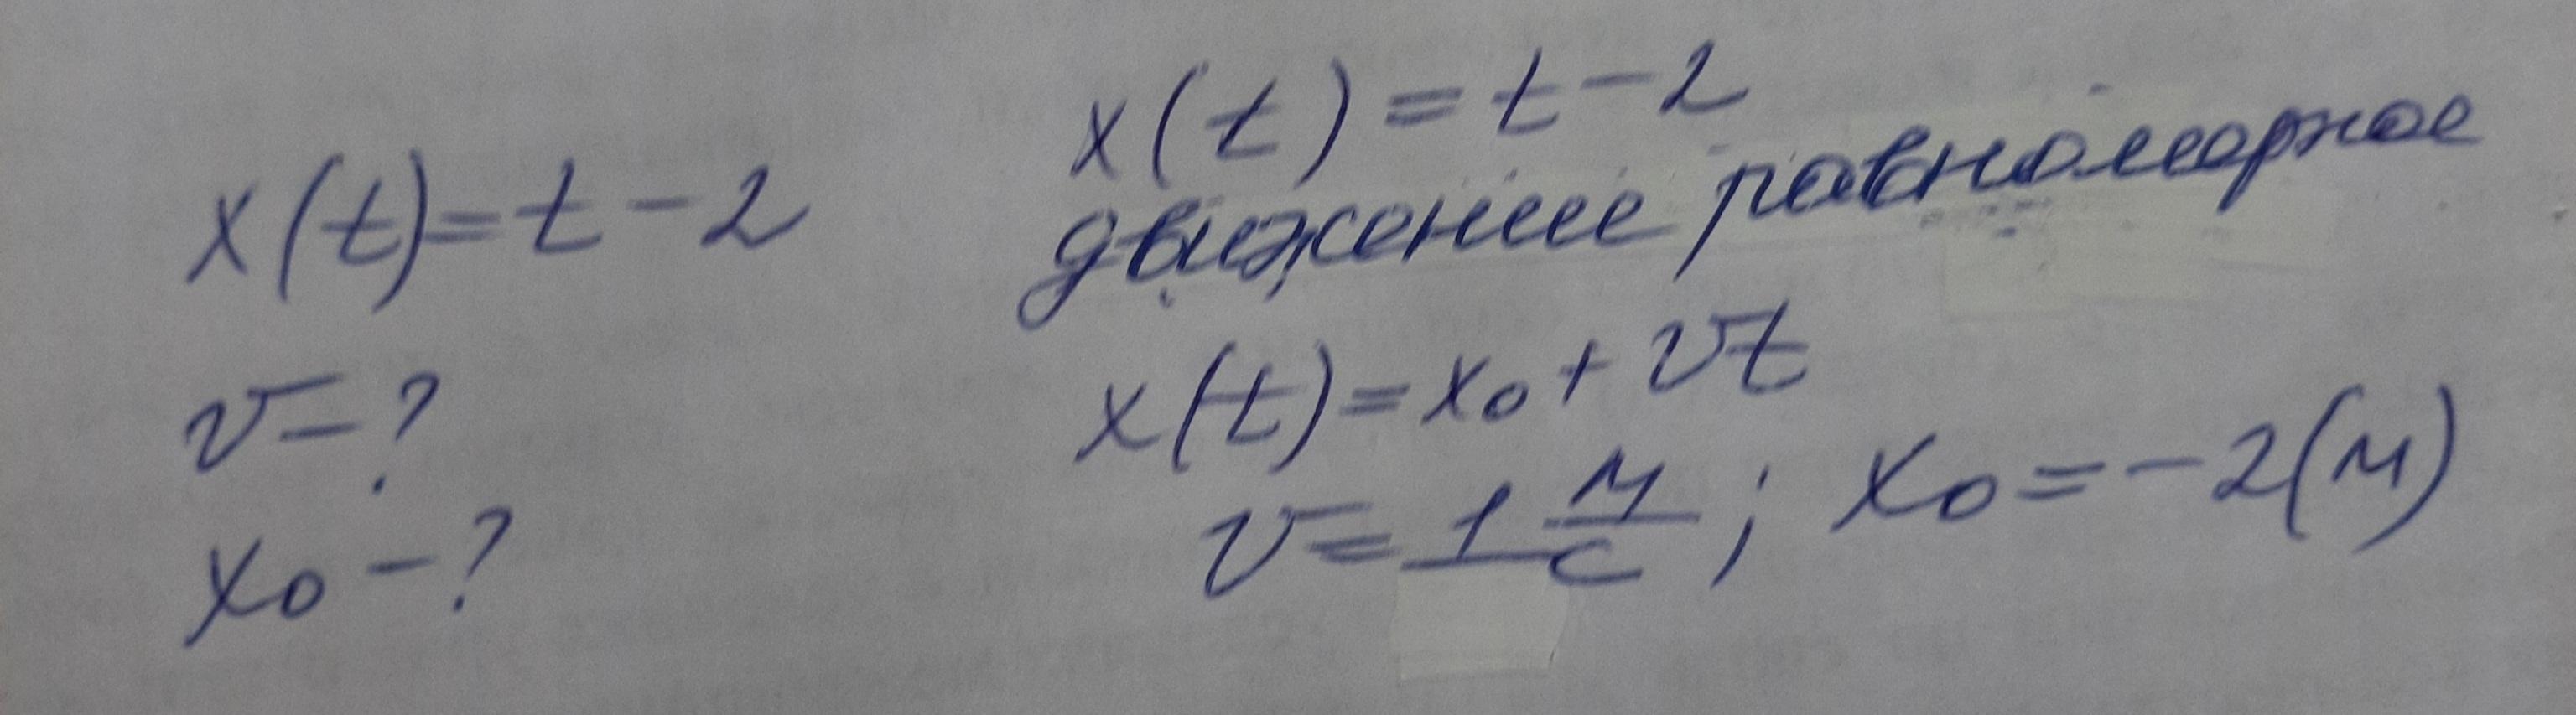 x(t)=t-2
v-?
x₀-?
x(t)=t-2
движение равномерное
x(t)=x₀+vt
v=1 м/с; x₀=-2(м)